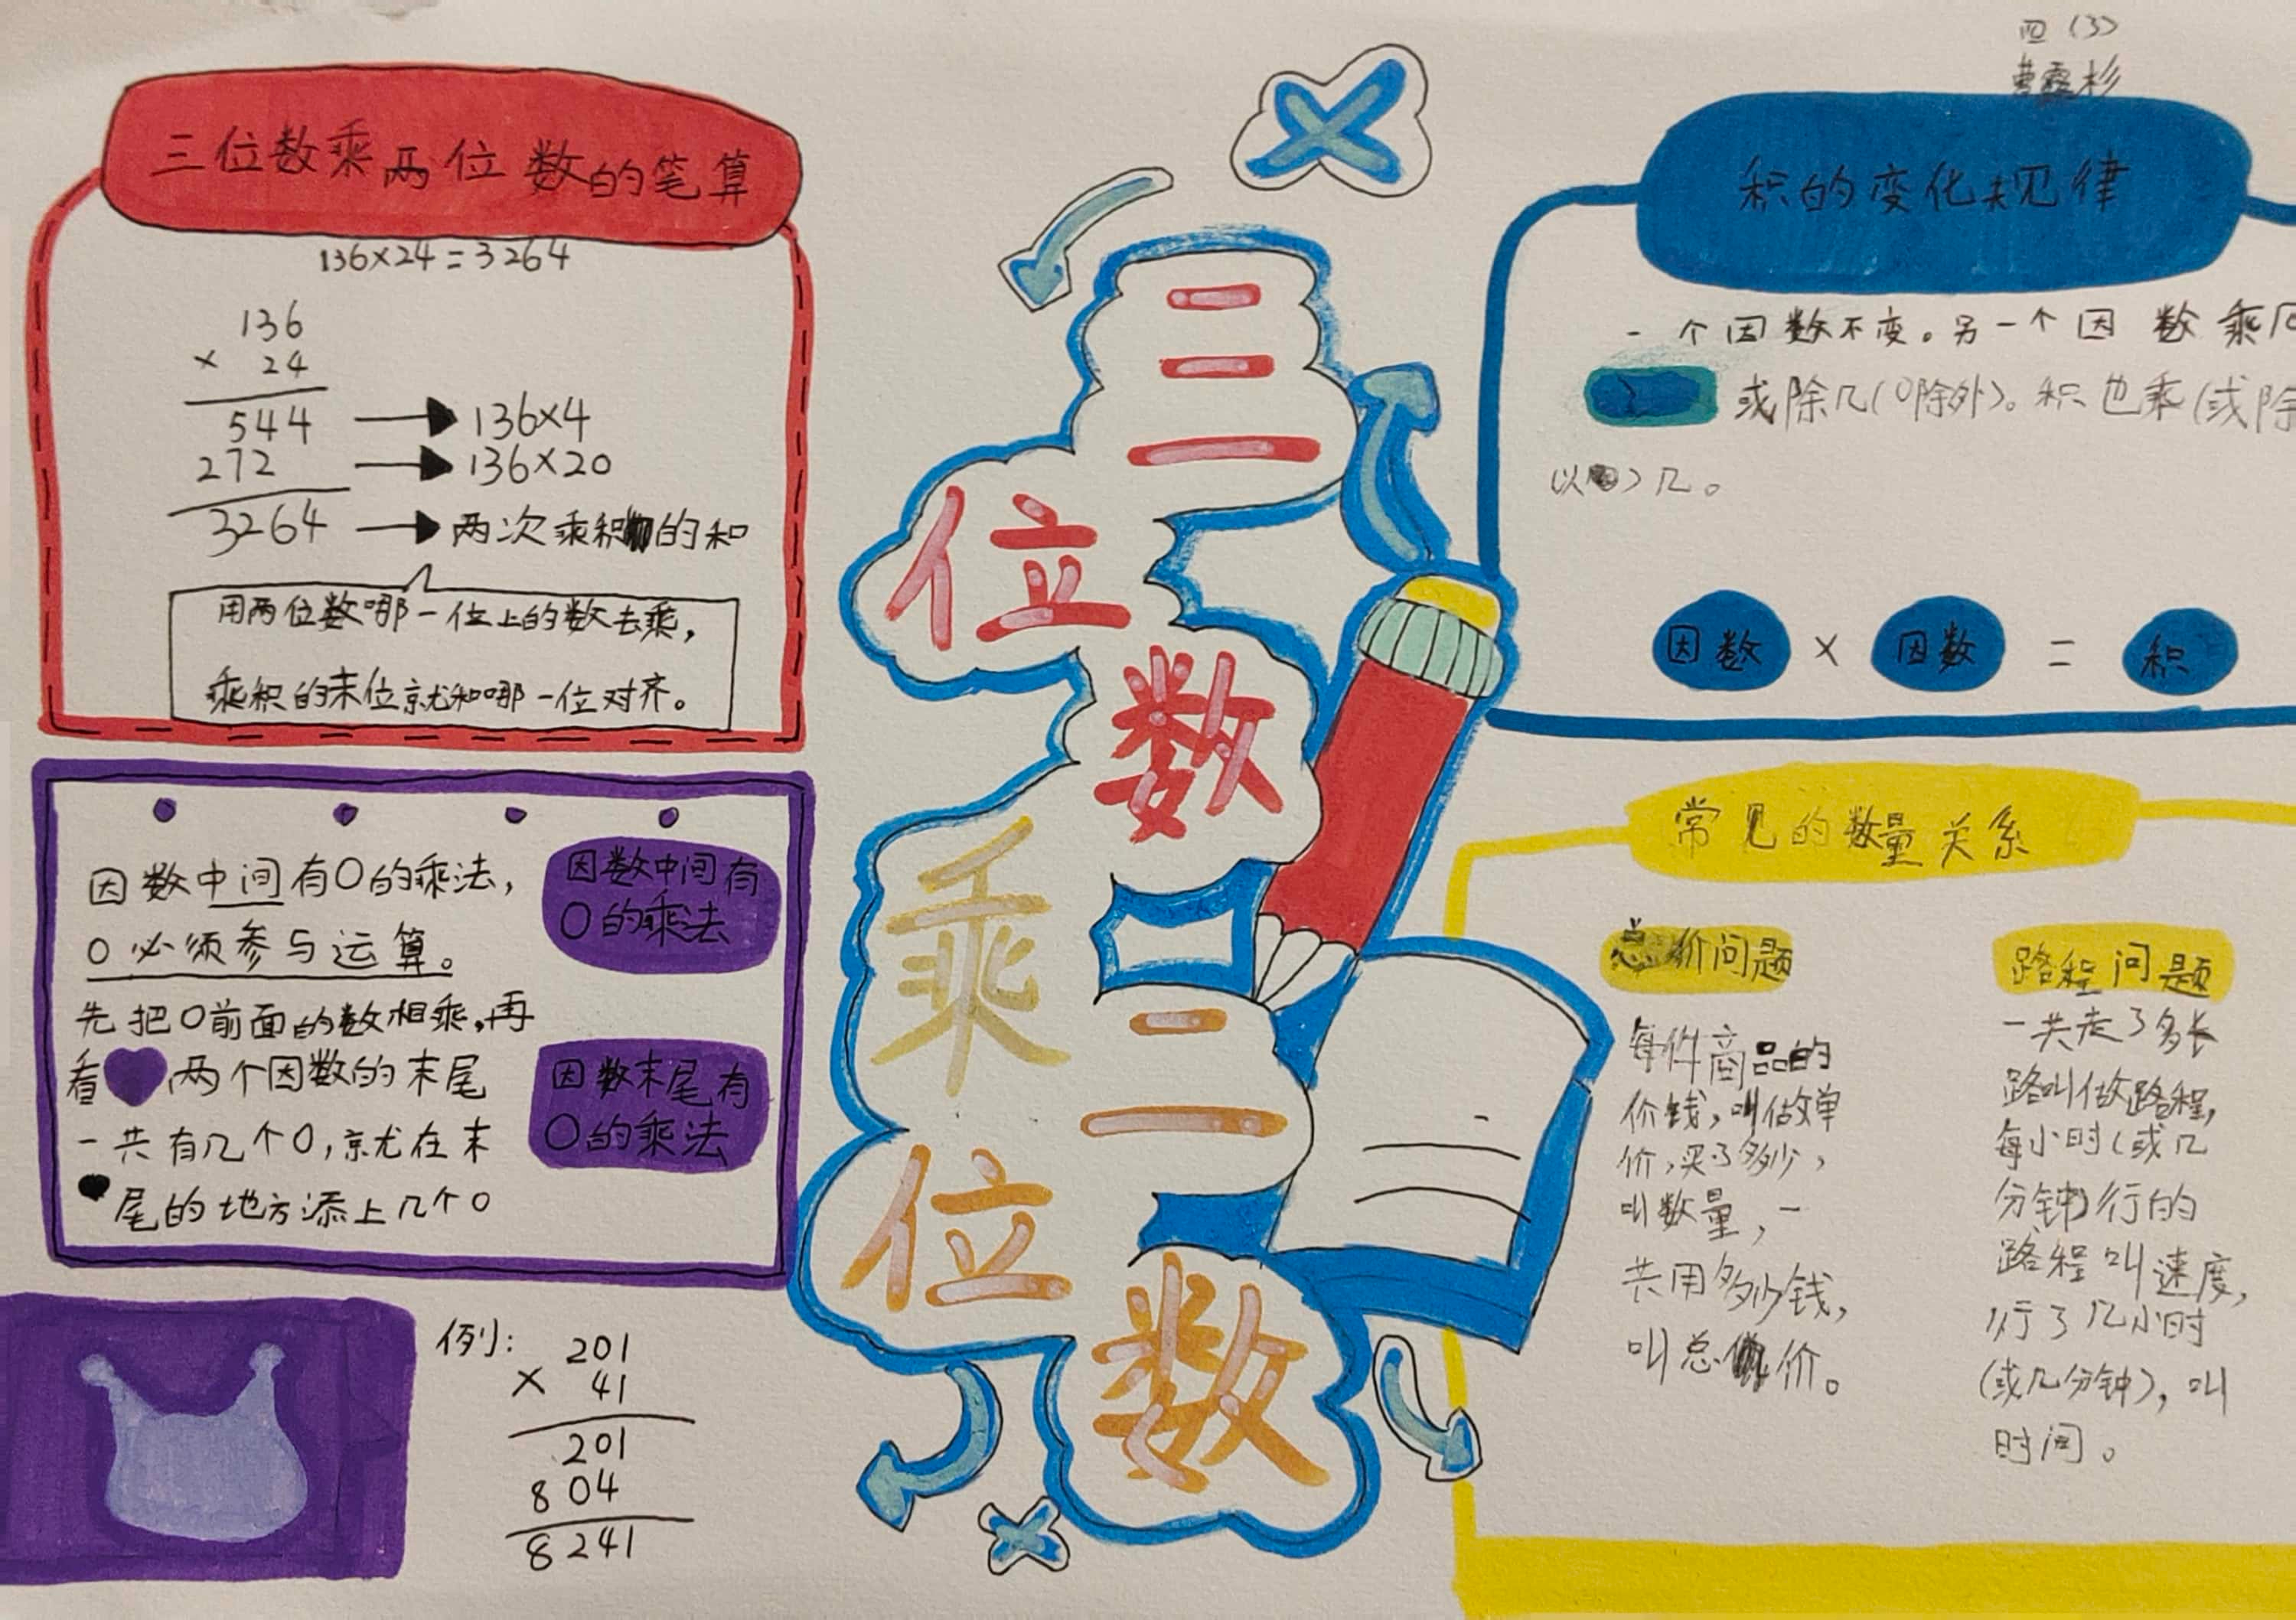 四（3）
三位数乘两位数的笔算
136×24=3264
136
× 24
544 → 136×4
272 → 136×20
3264 → 两次乘积的和
用两位数哪一位上的数去乘，
乘积的末位就和哪一位对齐。
因数中间有0的乘法，
0必须参与运算。
因数中间有
0的乘法
先把0前面的数相乘，再
看两个因数的末尾
一共有几个0，就在末
尾的地方添上几个0
因数末尾有
0的乘法
例：
201
× 41
201
804
8241
三位数乘二位数
积的变化规律
一个因数不变。另一个因数乘
或除几（0除外）。积也乘（或除
以）几。
因数 × 因数 = 积
常见的数量关系
价问题
每件商品的
价钱，叫做单
价，买了多少，
叫数量，一
共用多少钱，
叫总价。
路程问题
一共走了多长
路叫做路程，
每小时（或几
分钟）行的
路程叫速度，
行了几小时
（或几分钟），叫
时间。